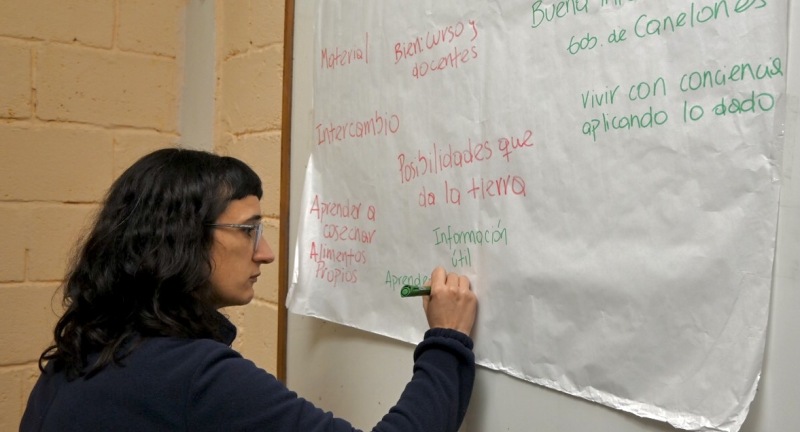 Material
Bien: curso y
docentes
Buena
Gob. de Canelones
vivir con conciencia
aplicando lo dado
Intercambio
Posibilidades que
da la tierra
Aprender a
cosechar
Alimentos
Propios
Información
útil
Aprende